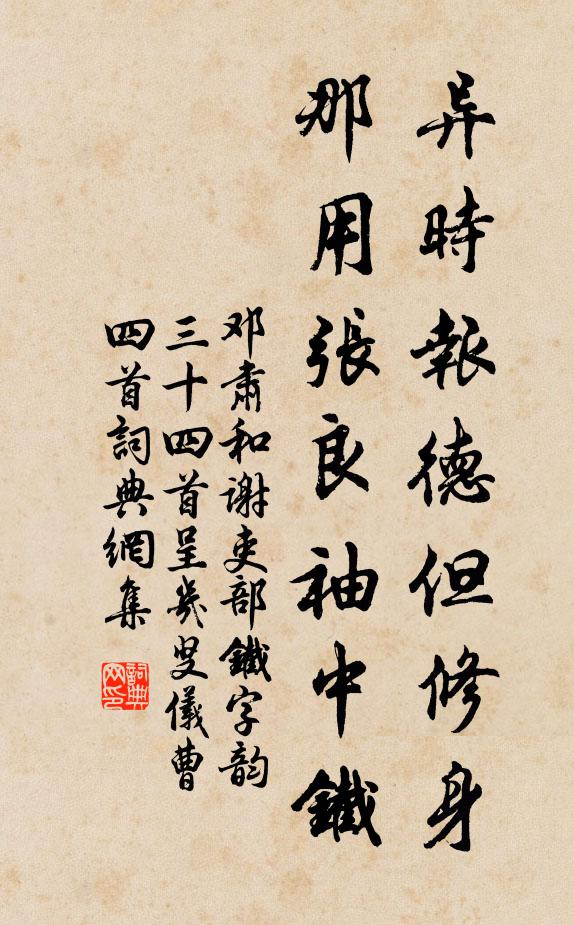 异時報德但修身
那用張良袖中鐵
邓肅和谢吏部鐵字韵
三十四首呈幾叟儀曹
四首詞典網集
詞典网印